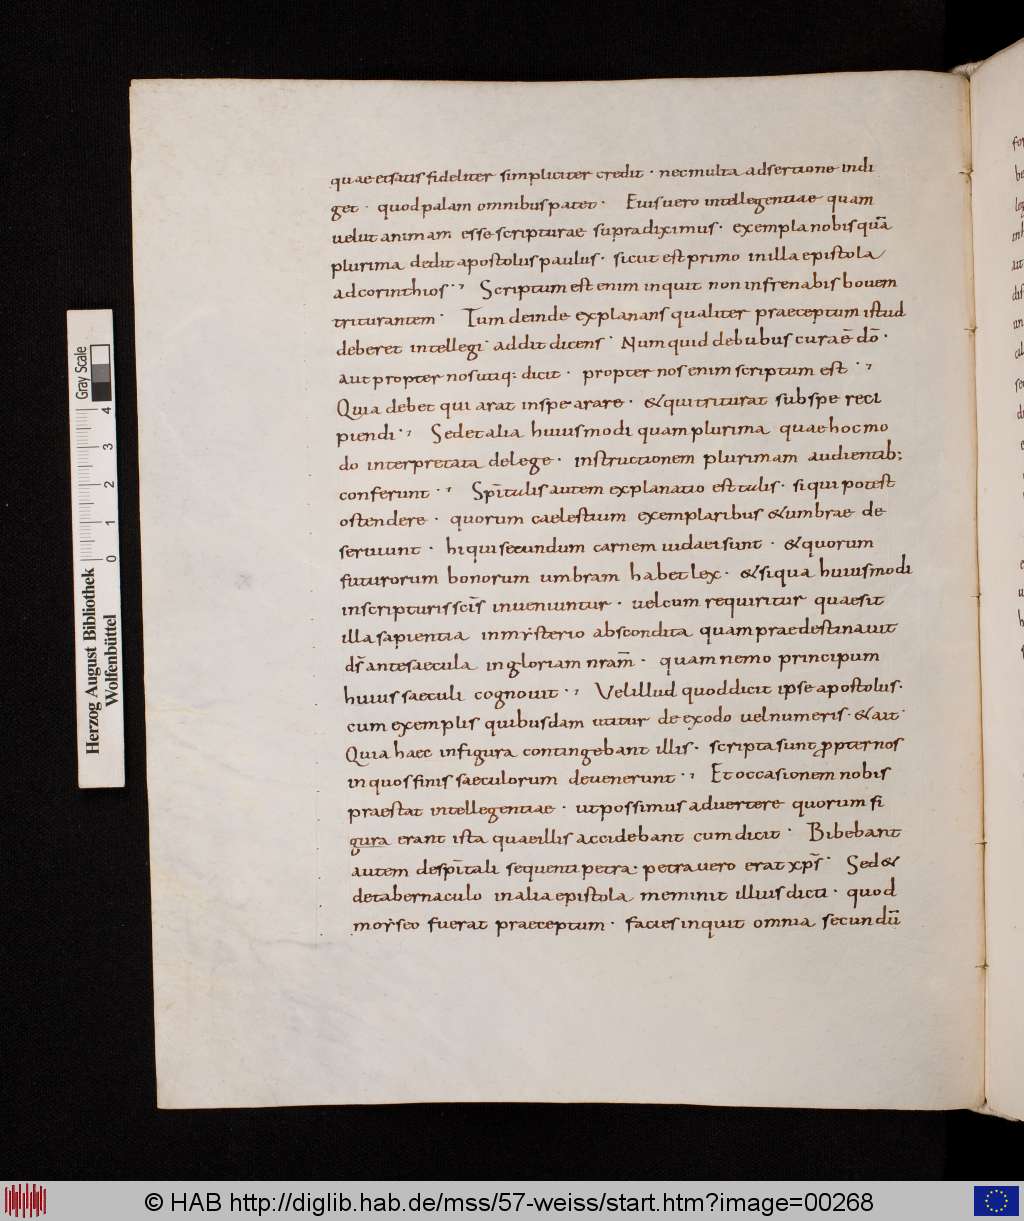 quae et satis fideliter simpliciter credit · nec multa adsertione indi
get · quod palam omnibus patet · Euis uero intellegentiae quam
uelut animam esse scripturae supra diximus · exempla nobis quā
plurima dedit apostolus paulus · sicut est primo in illa epistola
ad corinthios · Scriptum est enim inquit non infrenabis bouem
triturantem · Tum deinde explanans qualiter praeceptum istud
deberet intellegi · addit dicens · Num quid de bubus curaē dō ·
aut propter nos utiq: dicit · propter nos enim scriptum est ·
Quia debet qui arat in spe arare · & qui triturat sub spe reci
piendi · Sed et alia huiusmodi quam plurima quae hoc mo
do interpretata de lege · instructionem plurimam audientib;
conferunt · Sp̄italis autem explanatio est talis · si qui potest
ostendere · quorum caelestium exemplaribus & umbrae de
seruiunt · hi qui secundum carnem iudaei sunt · & quorum
futurorum bonorum umbram habet lex · & si qua huiusmodi
in scripturis sc̄is inueniuntur · uel cum requiritur quae sit
illa sapientia in mysterio abscondita quam praedestinauit
ds̄ ante saecula in gloriam nram̄ · quam nemo principum
huius saeculi cognouit · Vel illud quod dicit ipse apostolus ·
cum exemplis quibusdam utitur de exodo uel numeris · & ait ·
Quia haec in figura contingebant illis · scripta sunt ꝓpter nos
in quos finis saeculorum deuenerunt · Et occasionem nobis
praestat intellegentiae · ut possimus aduertere quorum fi
gura erant ista quae illis accidebant cum dicit · Bibebant
autem de sp̄itali sequenti petra · petra uero erat xps̄ · Sed &
de tabernaculo in alia epistola meminit illius dicti · quod
moyseo fuerat praeceptum · facies inquit omnia secundū
Gray Scale
0 1 2 3 4
Herzog August Bibliothek
Wolfenbüttel
© HAB http://diglib.hab.de/mss/57-weiss/start.htm?image=00268